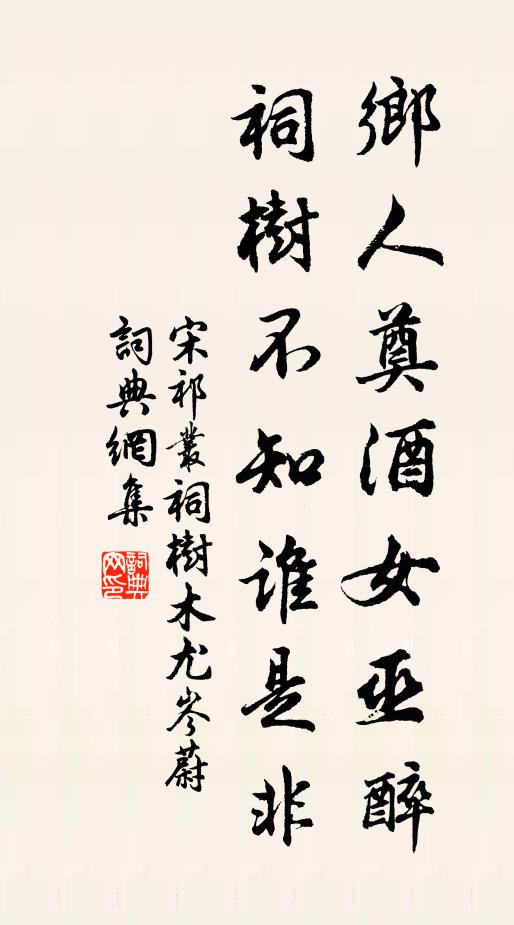 鄉人奠酒女巫醉
祠樹不知誰是非
宋祁叢祠樹木尤岑蔚
詞典網集
詞典網印